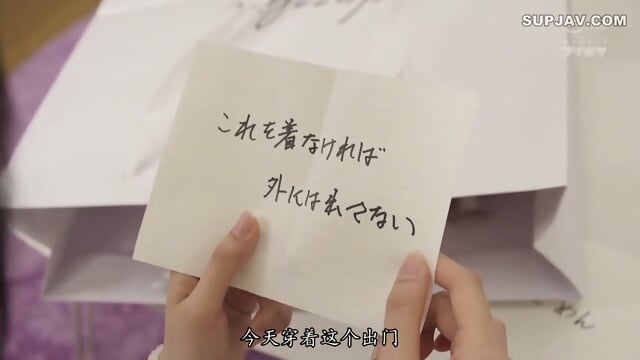 SUPJAV.COM
アイポケ
これを着なければ
外には出さない
今天穿着这个出门